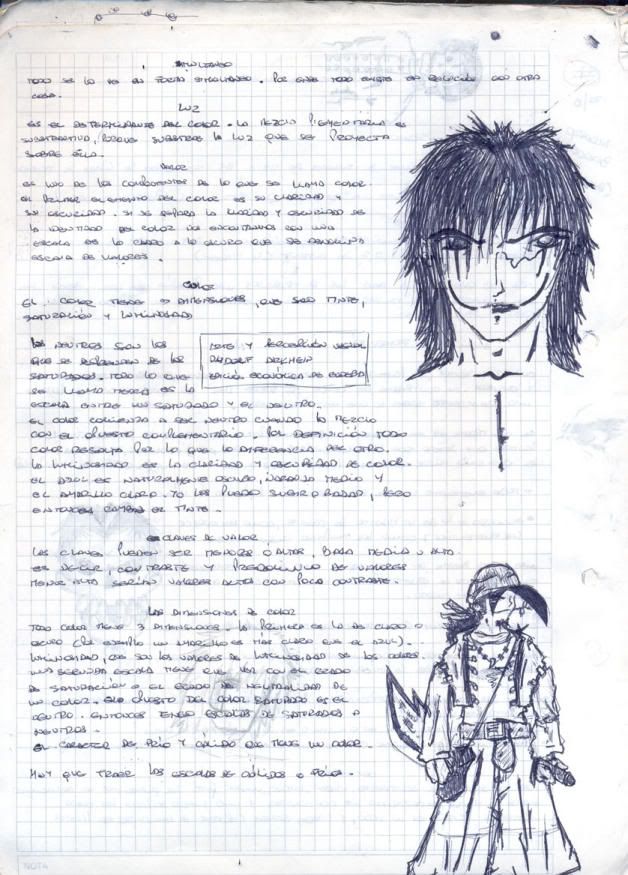 SIMULTANEO
TODO SE LO VE EN FORMA SIMULTANEO. POR ENDE TODO EXISTE EN RELACIÓN CON OTRA
COSA.
LUZ
ES EL DETERMINANTE DEL COLOR. LA MEZCLA PIGMENTARIA ES
SUBSTRACTIVA, PORQUE SUBSTRAE LA LUZ QUE SE PROYECTA
SOBRE ELLA.
VALOR
ES UNO DE LOS COMPONENTES DE LO QUE SE LLAMA COLOR.
EL PRIMER ELEMENTO DEL COLOR ES SU CLARIDAD Y
SU OSCURIDAD. SI SE SEPARA LA CLARIDAD Y OSCURIDAD DE
LA IDENTIDAD DEL COLOR NOS ENCONTRAMOS CON UNA
ESCALA DE LO CLARO A LO OSCURO QUE SE DENOMINA
ESCALA DE VALORES.
COLOR
EL COLOR TIENE 3 DIMENSIONES, QUE SON TINTE,
SATURACIÓN Y LUMINOSIDAD
LOS NEUTROS SON LOS
QUE SE DESPRENDEN DE LOS
SATURADOS. TODO LO QUE
SE LLAMA TIERRA ES LA
ESCALA ENTRE UN SATURADO Y EL NEUTRO.
ARTE Y PERCEPCIÓN VISUAL
RUDOLF ARNHEIM
EDICIÓN ECONÓMICA DE EUDEBA
EL COLOR COMIENZA A SER NEUTRO CUANDO LO MEZCLO
CON EL OPUESTO COMPLEMENTARIO. POR DEFINICIÓN TODO
COLOR RESALTA POR LO QUE LO DIFERENCIA DEL OTRO.
LA LUMINOSIDAD ES LA CLARIDAD Y OSCURIDAD DE COLOR.
EL AZUL ES NATURALMENTE OSCURO, NARANJA MEDIO Y
EL AMARILLO CLARO. YO LES PUEDO SUBIR O BAJAR, PERO
ENTONCES CAMBIA EL TINTE.
CLAVES DE VALOR
LAS CLAVES PUEDEN SER MENORES O ALTAS, BAJA MEDIA U ALTA.
ES DECIR, CONTRASTE Y PREDOMINIO DE VALORES
MENOR ALTA SERÍAN VALORES ALTOS CON POCO CONTRASTE.
LAS DIMENSIONES DE COLOR
TODO COLOR TIENE 3 DIMENSIONES. LA PRIMERA ES LO DE CLARO O
OSCURO (POR EJEMPLO UN AMARILLO ES MAS CLARO QUE EL AZUL).
LUMINOSIDAD, QUE SON LOS VALORES DE LUMINOSIDAD DE LOS COLORES.
UNA SEGUNDA ESCALA TIENE QUE VER CON EL GRADO
DE SATURACIÓN O EL GRADO DE NEUTRALIDAD DE
UN COLOR. EL OPUESTO DEL COLOR SATURADO ES EL
NEUTRO. ENTONCES TENGO ESCALAS DE SATURADOS A
NEUTROS.
EL CARACTER DE FRÍO Y CÁLIDO QUE TIENE UN COLOR.
HAY QUE TRAER LAS ESCALAS DE CÁLIDOS A FRÍOS.
NOTA